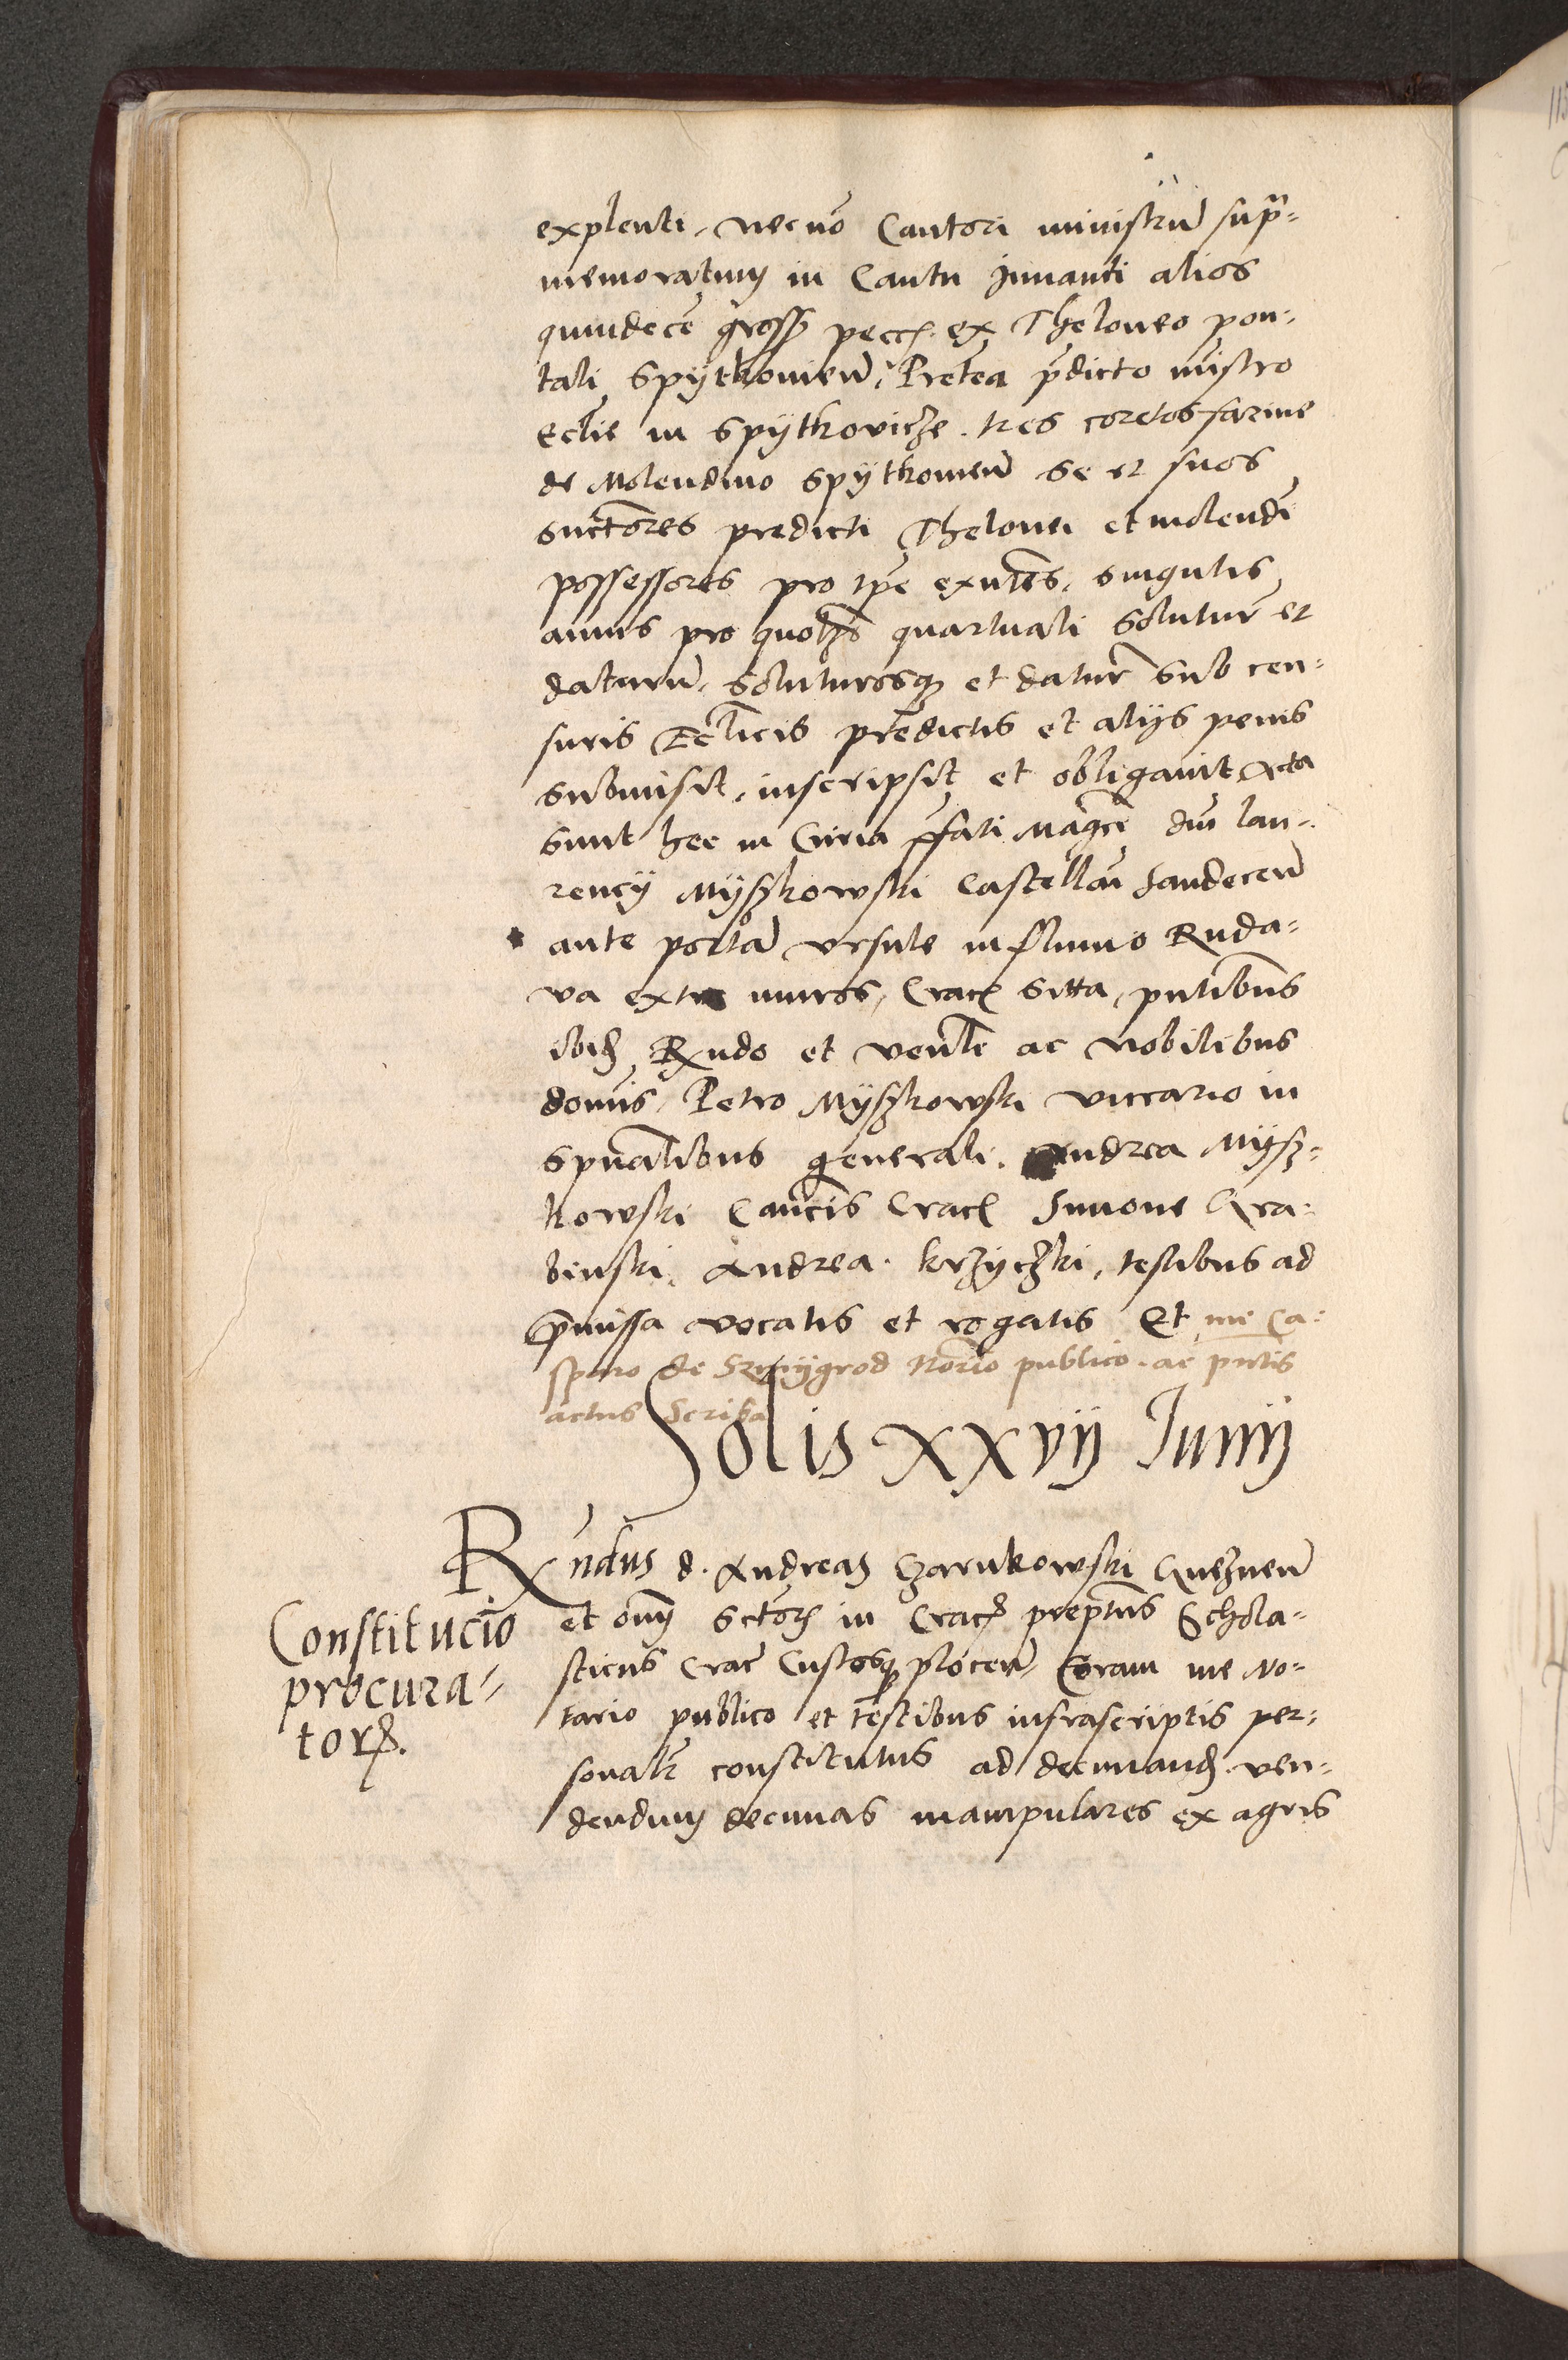 explenti, necnō Cantori ministrū supra=
memoratum in Cantu Juuanti alios
quindecē gross pecc. ex Theloneo pon=
tali Spÿtkouień, Pretea p̄dicto mīstro
Eclīe in Spÿtkovicze. tres coretos farine
de Molendino Spÿtkouień se et suos
succōres predicti Thelonei et molendī
possessores pro tp̄e exntēs, singulis
annis pro quolꝫ quartuali Soluturū et
daturū, Soluturosqꝫ et datur̄ sub cen=
suris Ecclīcis predictis et alijs penis
submisit, inscripsit et obligauit Acta
sunt hec in Curia p̄fati Magcī dnī lau=
rencÿ Mÿszkowski Castellanī Sandeceń
ante portā vrsule in fluuio Ruda=
va extra muros, Crac̄ sitta, pntībus
ibiđ Rnđo et venlī ac nobilibus
domīs, Petro Mÿszkowski viccario in
spūalibus generali. Andrea Mÿsz=
kowski Cancīs Crac̄ Simone Gra=
binski, Andrea. Krzyczki, testibus ad
p̄missa vocatis et rogatis Et me Ca=
sparo de Szmÿgrod Notrio publico. ac pn̄tis
actus Scriba
Solis XXVIJ Junij
Rndus d. Andreas Czarnkowski Gneznen̄
et omnī sctorꝫ in Crac̄ prepītus Schola=
sticus Crac̄ Custosqꝫ plocen̄, Coram me No=
tario publico et testibus infrascriptis per=
sonalr̄ constitutus ad decimanđ. ven=
dendum decimas manipulares ex agris
Constitucio
procura=
torꝫ.